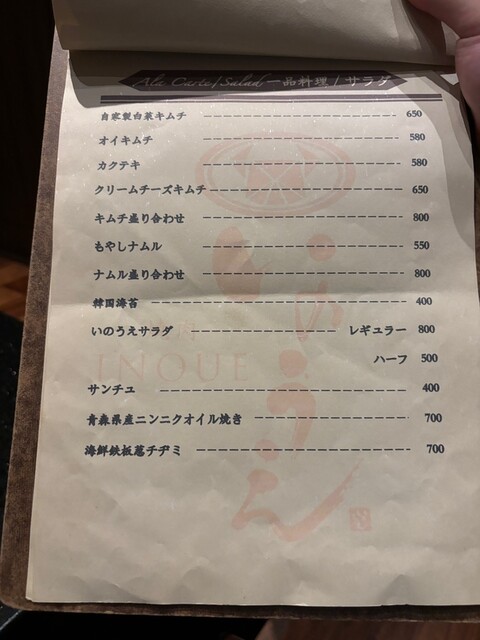 Ala Carte/Salad 一品料理/サラダ
自家製白菜キムチ 650
オイキムチ 580
カクテキ 580
クリームチーズキムチ 650
キムチ盛り合わせ 800
もやしナムル 550
ナムル盛り合わせ 800
韓国海苔 400
いのうえサラダ レギュラー 800
ハーフ 500
INOUE
サンチュ 400
青森県産ニンニクオイル焼き 700
海鮮鉄板葱チヂミ 700
いのうえ